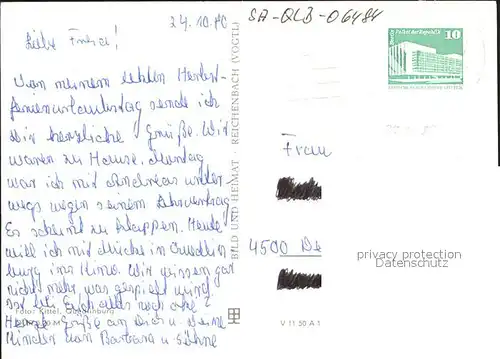 24.10.80
SA-QLB-06484
Liebe Frau!
Von meinem letzten Herbst-
ferienurlaubstag sende ich
Dir herzliche Grüße. Wir
waren zu Hause. Montag
war ich mit Andreas unter-
wegs wegen seinem Lehrvertrag
Es scheint zu klappen. Heute
will ich mit in Quedlin
burg ins Kino. Wir wissen gar
nicht mehr was gespielt wird
noch alle
Grüße an Dich u. Deine
Kinder von Barbara u. Söhne
Foto: Kittel, Quedlinburg
BILD UND HEIMAT · REICHENBACH (VOGTL)
V 11 50 A 1
Berlin, Palast der Republik
10
Frau
4500
privacy protection
VERITAS